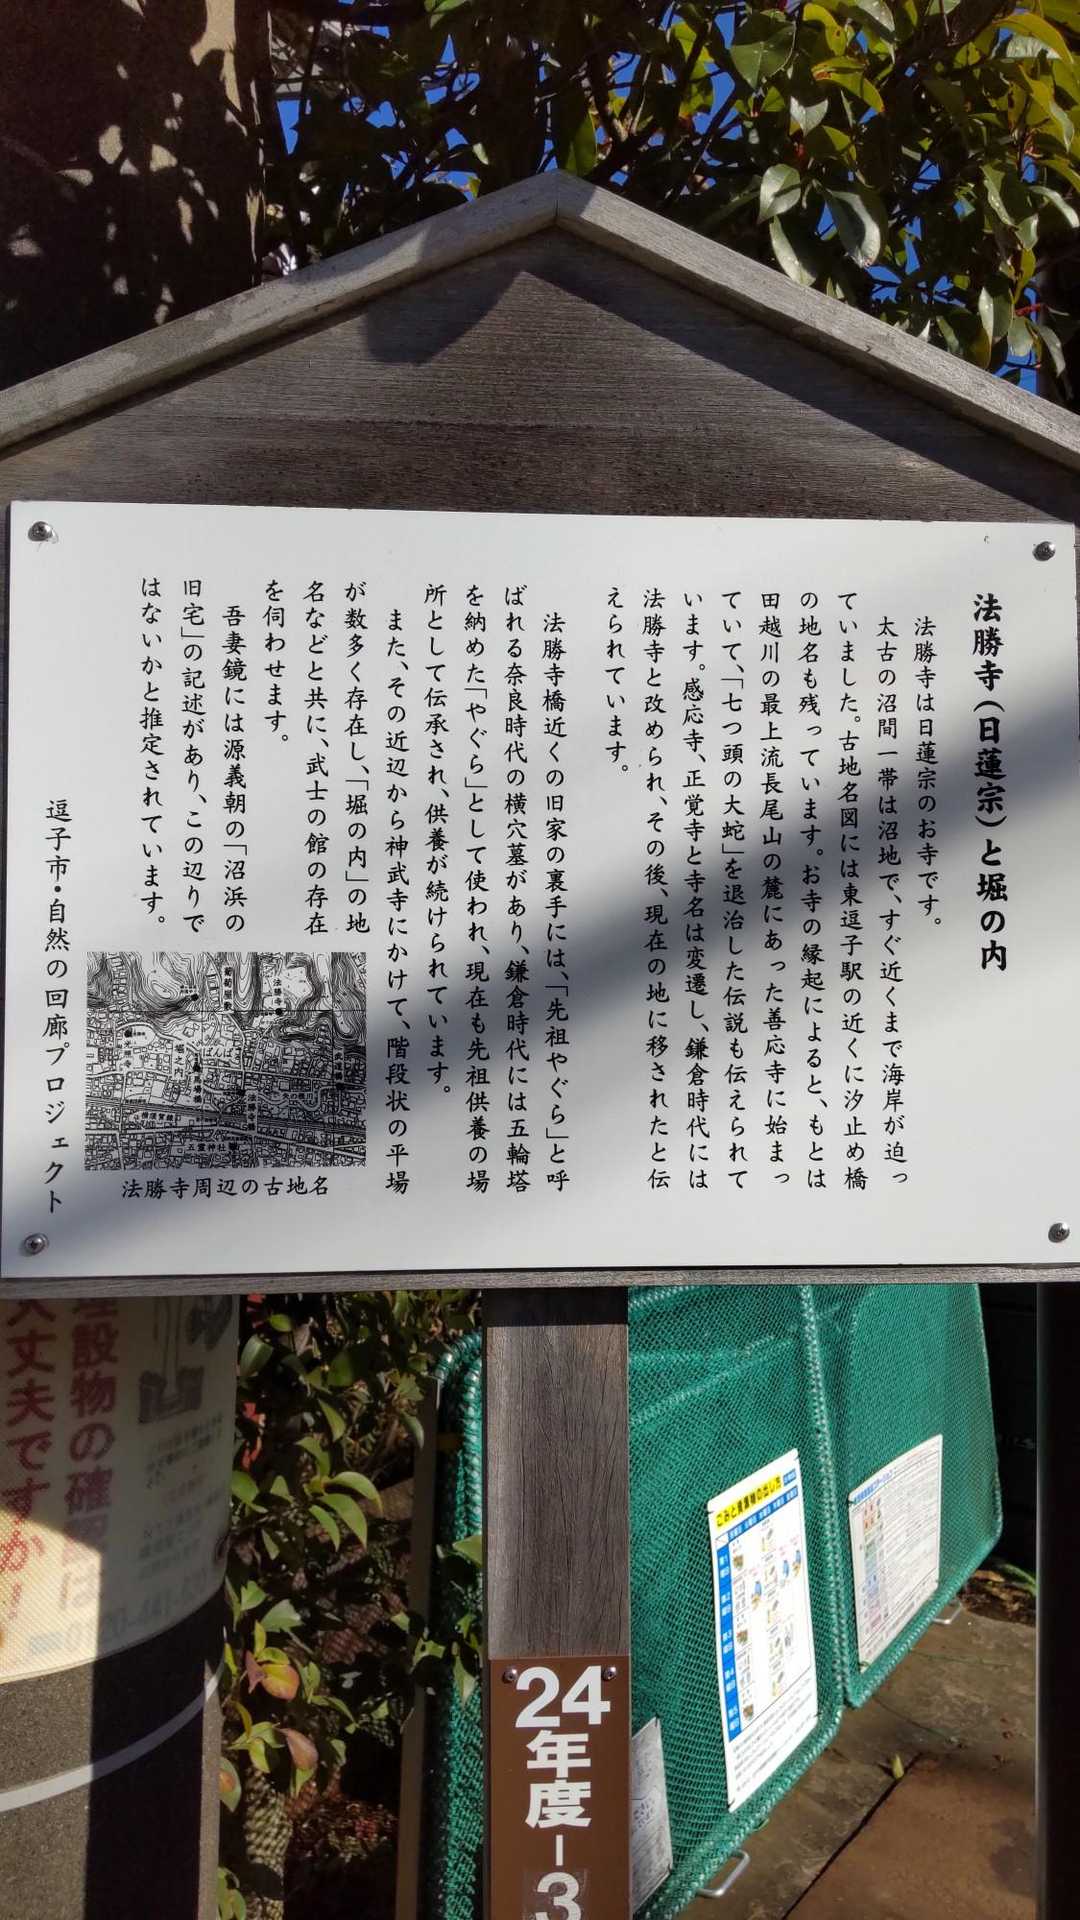 法勝寺(日蓮宗)と堀の内
法勝寺は日蓮宗のお寺です。
太古の沼間一帯は沼地で、すぐ近くまで海岸が迫っ
ていました。古地名図には東逗子駅の近くに汐止め橋
の地名も残っています。お寺の縁起によると、もとは
田越川の最上流長尾山の麓にあった善応寺に始まっ
ていて、「七つ頭の大蛇」を退治した伝説も伝えられて
います。感応寺、正覚寺と寺名は変遷し、鎌倉時代には
法勝寺と改められ、その後、現在の地に移されたと伝
えられています。
法勝寺橋近くの旧家の裏手には、「先祖やぐら」と呼
ばれる奈良時代の横穴墓があり、鎌倉時代には五輪塔
を納めた「やぐら」として使われ、現在も先祖供養の場
所として伝承され、供養が続けられています。
また、その近辺から神武寺にかけて、階段状の平場
が数多く存在し、「堀の内」の地
名などと共に、武士の館の存在
を伺わせます。
吾妻鏡には源義朝の「沼浜の
旧宅」の記述があり、この辺りで
はないかと推定されています。
法勝寺
堀之内
法勝寺橋
五霊神社
法勝寺周辺の古地名
逗子市・自然の回廊プロジェクト
埋設物の確
丈夫ですか!
ごみと資源物の出し方
24
年度
-3